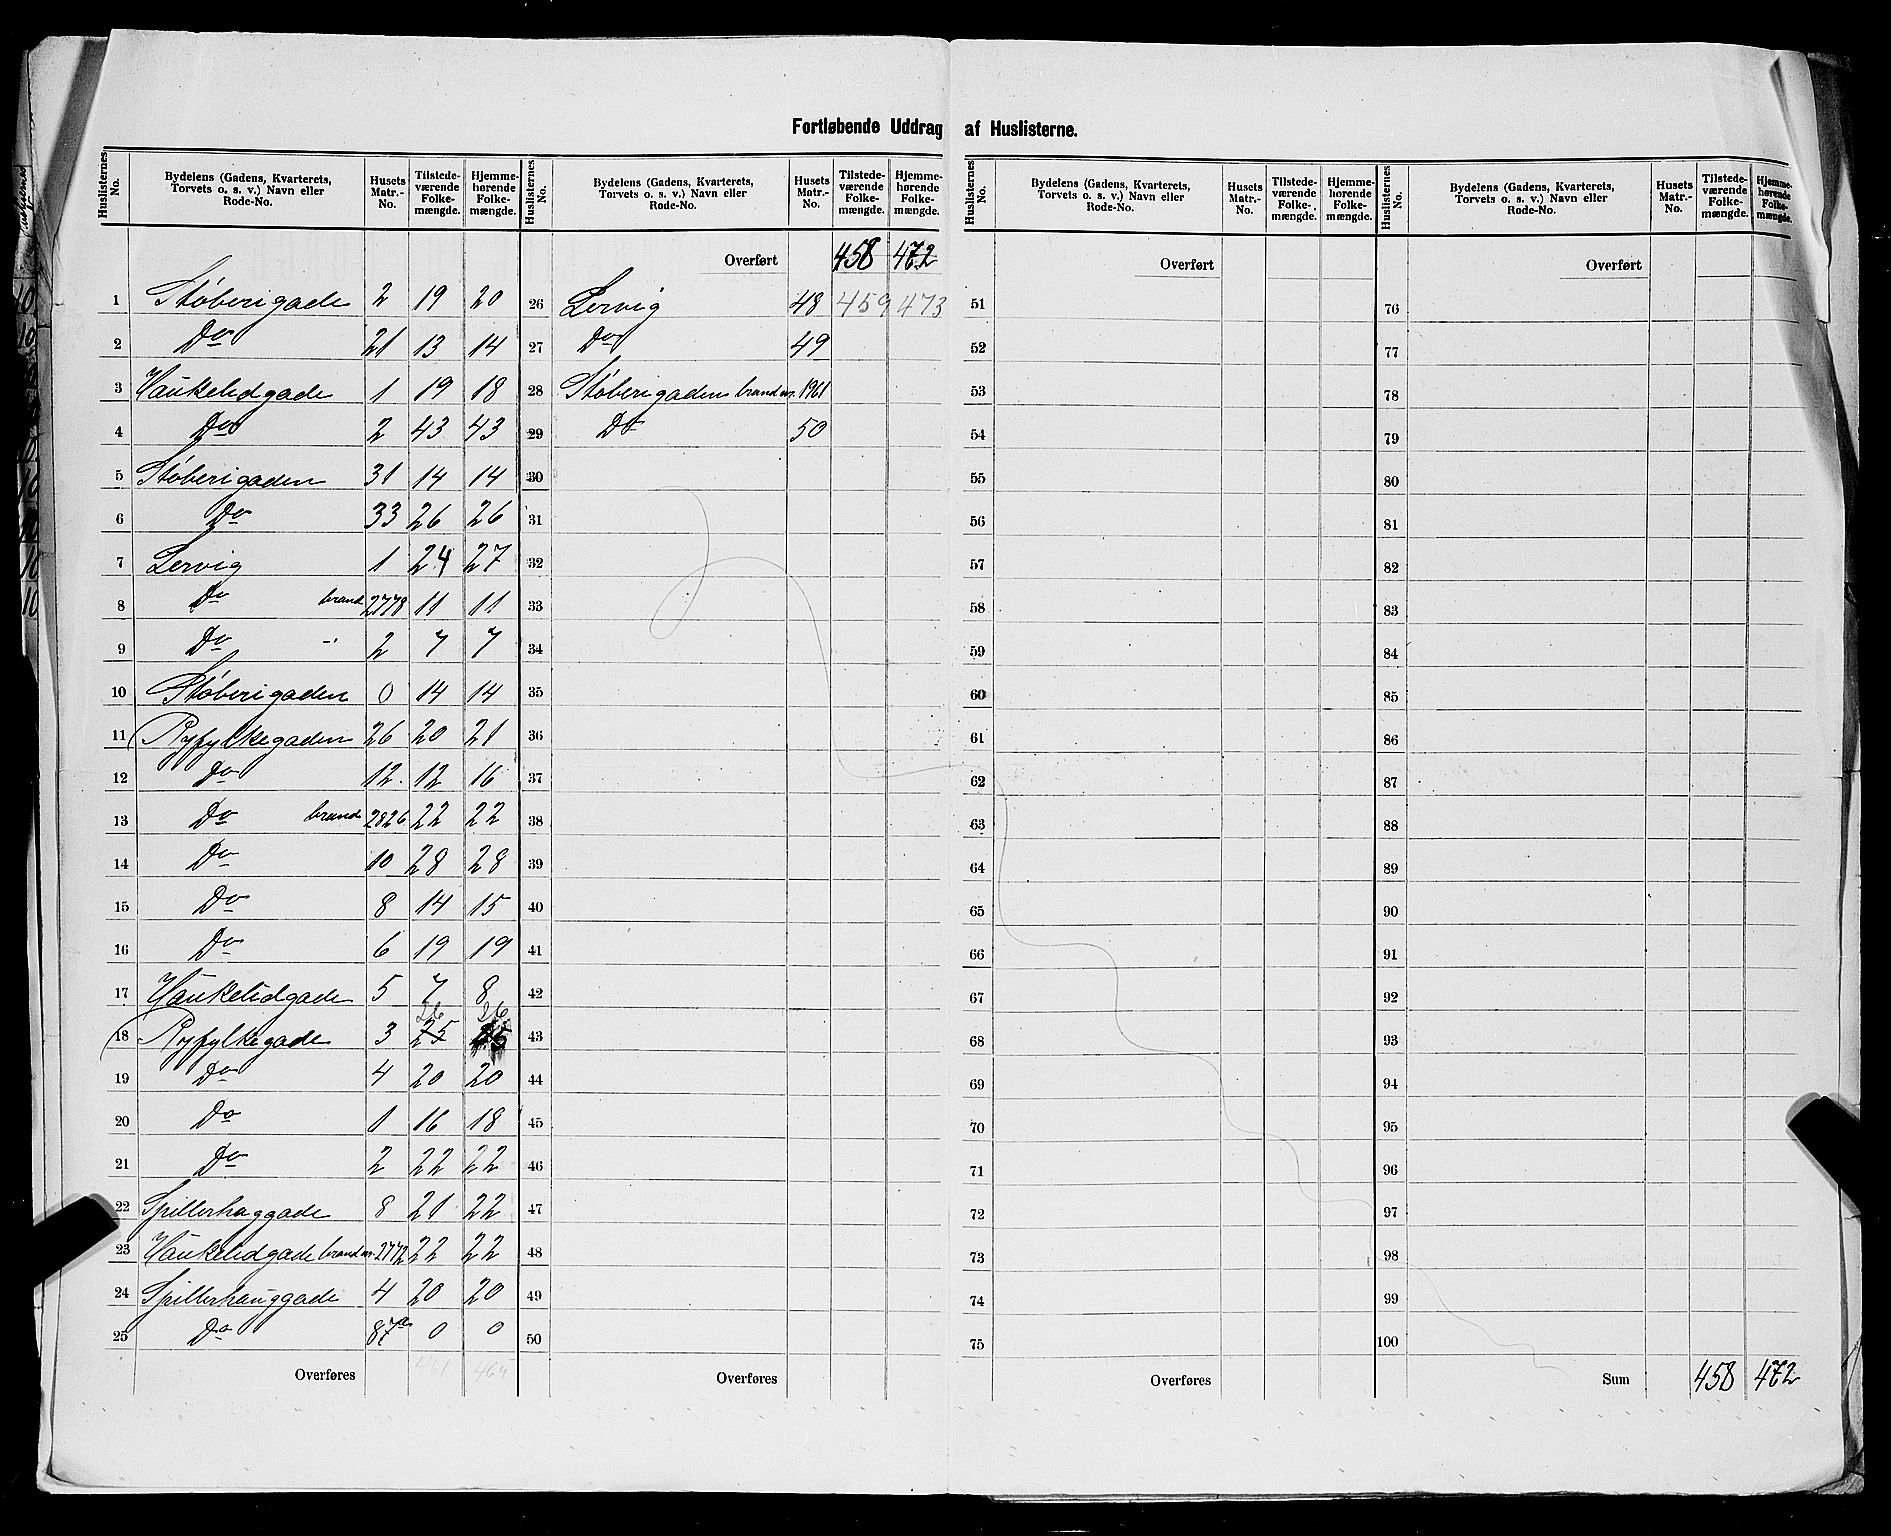 Fortløbende Uddrag af Huslisterne.
Huslisternes No. | Bydelens (Gadens, Kvarterets, Torvets o. s. v.) Navn eller Rode-No. | Husets Matr.-No. | Tilstede-værende Folke-mængde. | Hjemme-hørende Folke-mængde.
1 Støberigade 2 19 20
2 Do 21 13 14
3 Haukelidgade 1 19 18
4 Do 2 43 43
5 Støberigaden 31 14 14
6 Do 33 26 26
7 Lervig 1 24 27
8 Do brand 2778 11 11
9 Do -" 2 7 7
10 Støberigaden 0 14 14
11 Ryfylkegaden 26 20 21
12 Do 12. 12 16
13 Do brand 2826 22 22
14 Do 10 28 28
15 Do 8 14 15
16 Do 6 19 19
17 Haukelidgade 5 7 8
26 26
18 Ryfylkegade 3 25 25
19 Do 4 20 20
20 Do 1 16 18
21 Do 2 22 22
22 Spillerhaggade 8 21 22
23 Haukelidgade brand nr. 2772 22 22
24 Spillerhauggade 4 20 20
25 Do 87a 0 0
Overføres 461 469
Huslisternes No. | Bydelens (Gadens, Kvarterets, Torvets o. s. v.) Navn eller Rode-No. | Husets Matr.-No. | Tilstede-værende Folke-mængde. | Hjemme-hørende Folke-mængde.
Overført 458 472
26 Lervig 48 459 473
27 Do 49
28 Støberigaden brand nr. 1961
29 Do 50
30
31
32
33
34
35
36
37
38
39
40
41
42
43
44
45
46
47
48
49
50
Overføres
Huslisternes No. | Bydelens (Gadens, Kvarterets, Torvets o. s. v.) Navn eller Rode-No. | Husets Matr.-No. | Tilstede-værende Folke-mængde. | Hjemme-hørende Folke-mængde.
Overført
51
52
53
54
55
56
57
58
59
60
61
62
63
64
65
66
67
68
69
70
71
72
73
74
75
Overføres
Huslisternes No. | Bydelens (Gadens, Kvarterets, Torvets o. s. v.) Navn eller Rode-No. | Husets Matr.-No. | Tilstede-værende Folke-mængde. | Hjemme-hørende Folke-mængde.
Overført
76
77
78
79
80
81
82
83
84
85
86
87
88
89
90
91
92
93
94
95
96
97
98
99
100
Sum 458 472